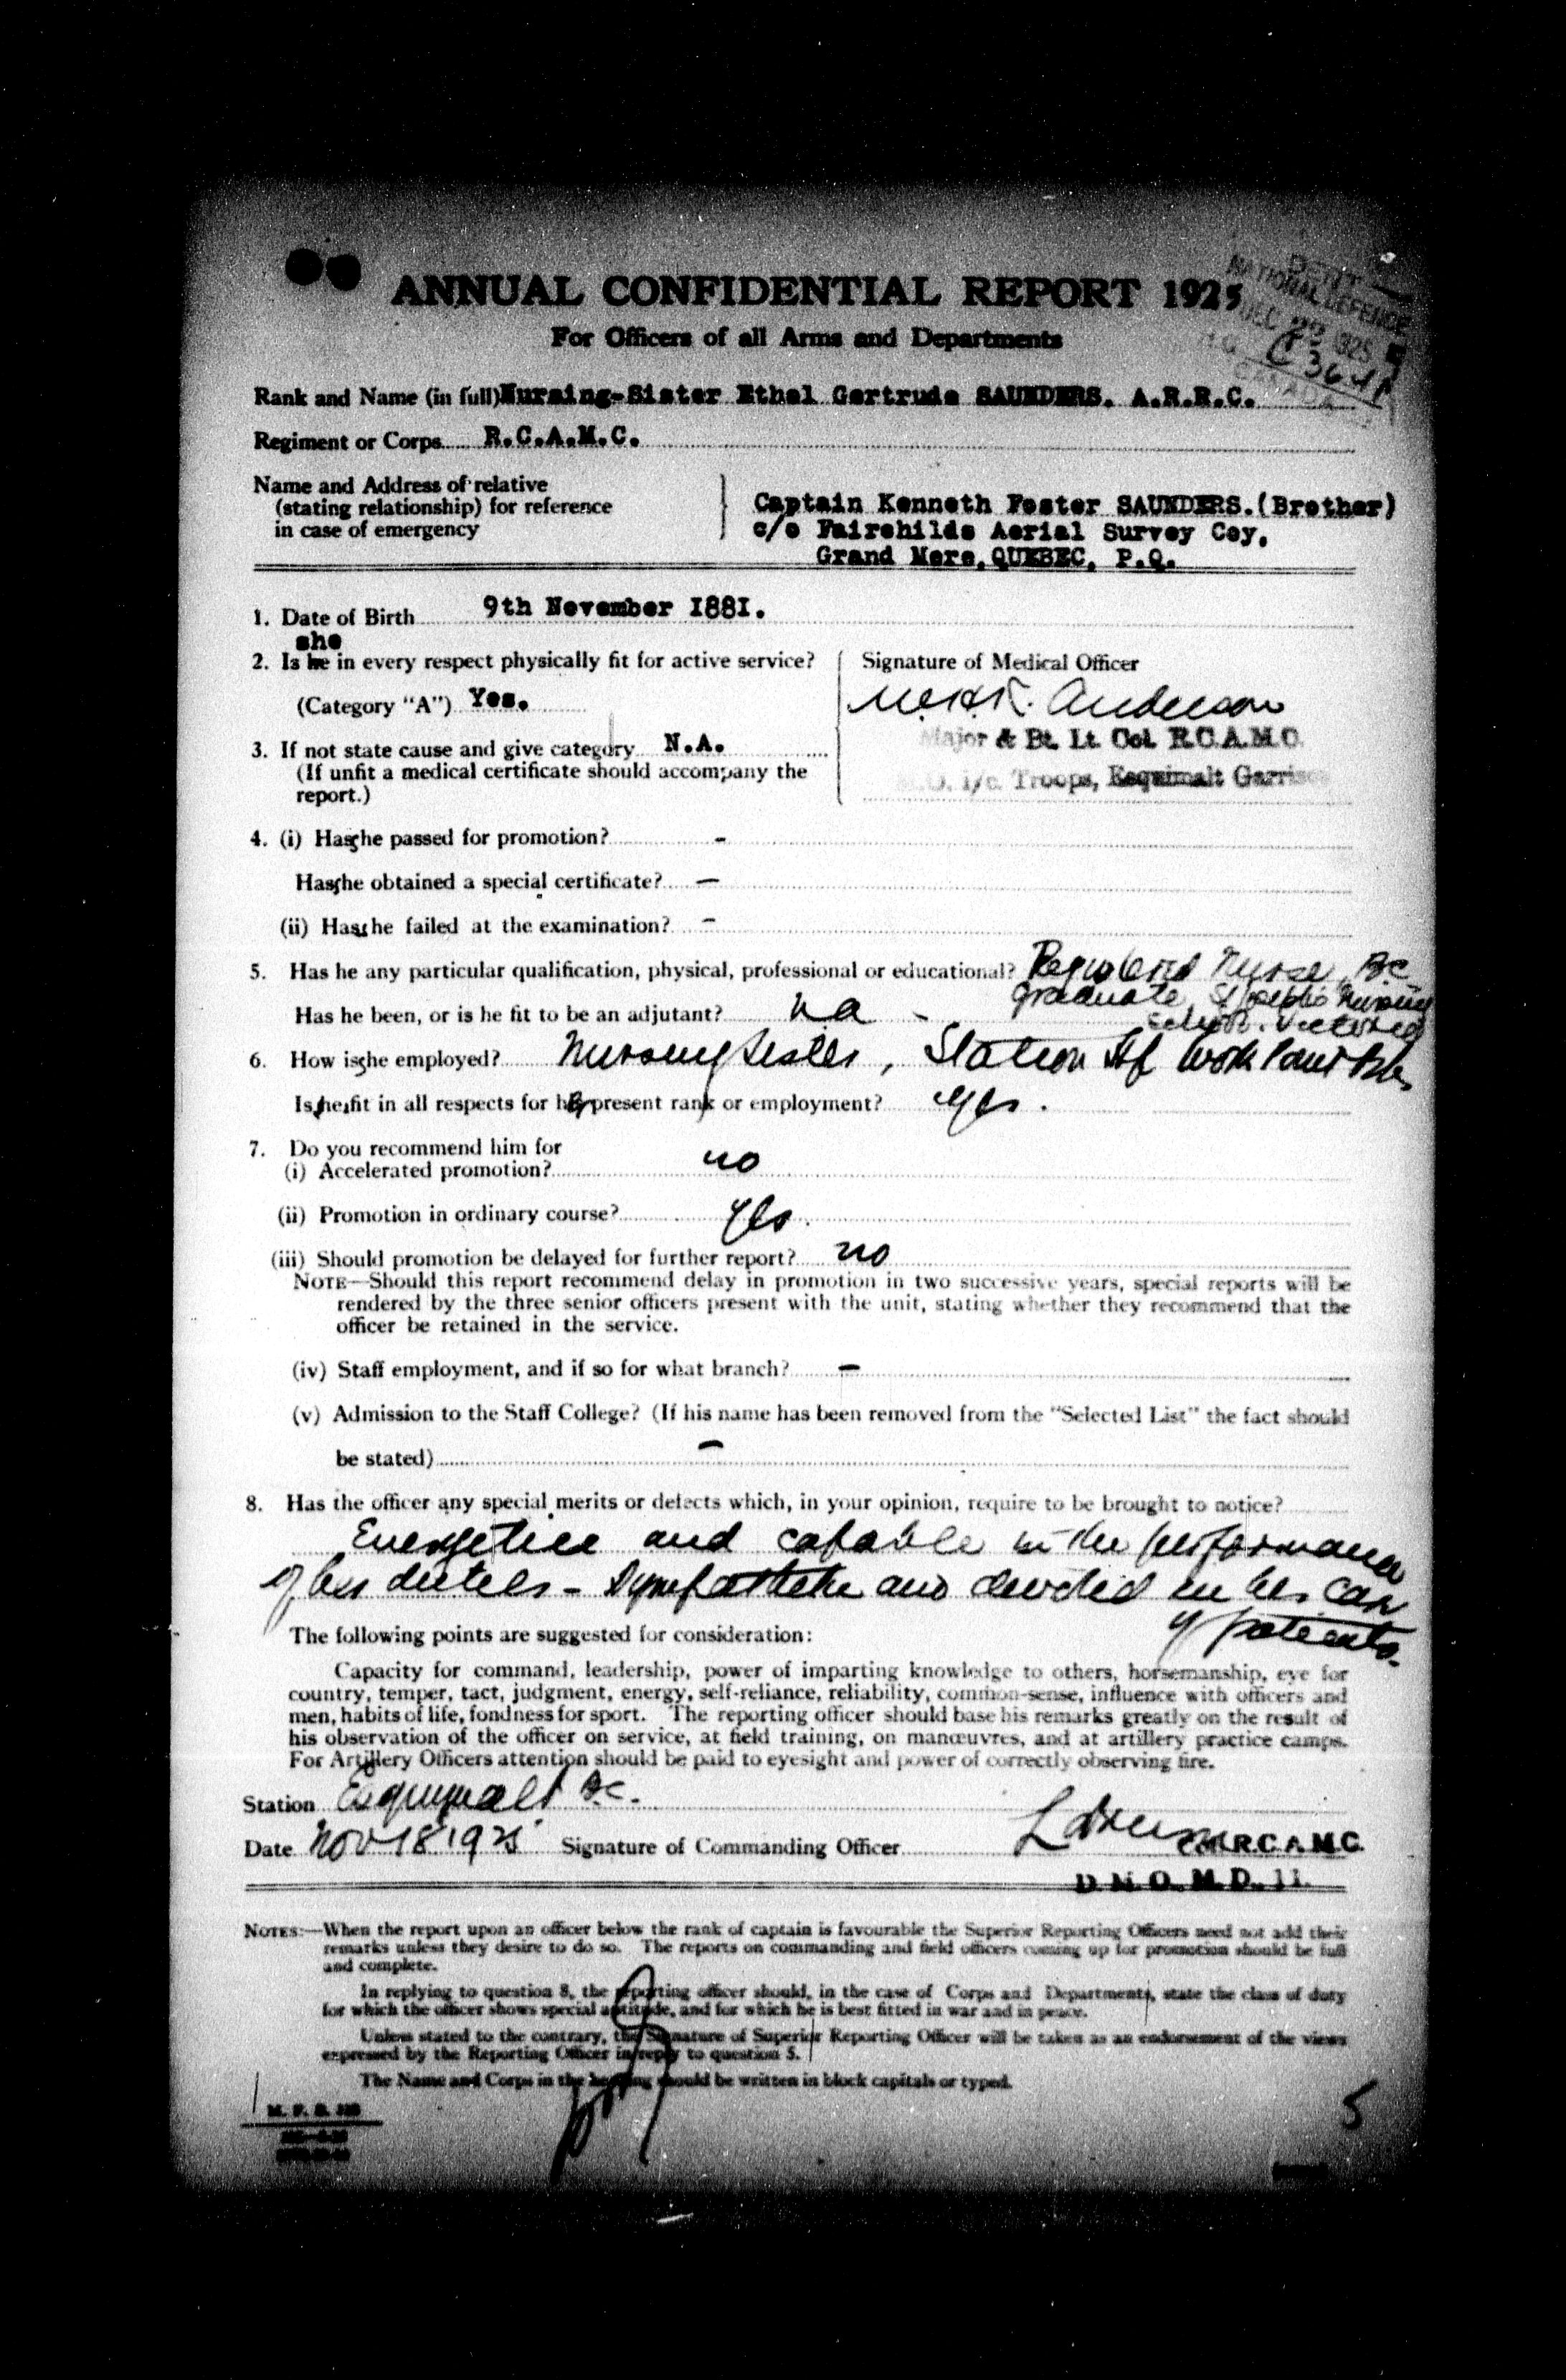 ANNUAL CONFIDENTIAL REPORT 1925
DEP'T
NATIONAL DEFENCE
DEC 1925
CANADA
For Officers of all Arms and Departments
Rank and Name (in full) Nursing-Sister Ethel Gertrude SAUNDERS. A.R.R.C.
Regiment or Corps R.C.A.M.C.
Name and Address of relative
(stating relationship) for reference
in case of emergency
Captain Kenneth Foster SAUNDERS.(Brother)
c/o Fairchilds Aerial Survey Coy,
Grand Mere, QUEBEC, P.Q.
1. Date of Birth 9th November 1881.
she
2. Is he in every respect physically fit for active service?
(Category "A") Yes.
Signature of Medical Officer
Anderson
Major & Bt. Lt. Col. R.C.A.M.C.
M.O. i/c. Troops, Esquimalt Garrison
3. If not state cause and give category N.A.
(If unfit a medical certificate should accompany the
report.)
4. (i) Has she passed for promotion? -
Has she obtained a special certificate? -
(ii) Has she failed at the examination? -
5. Has he any particular qualification, physical, professional or educational? Registered Nurse, BC
graduate, St Josephs Nursing
School. Victoria
Has he been, or is he fit to be an adjutant? na -
6. How is she employed? Nursing Sister, Station Hp Work Point Bks
Is she fit in all respects for her present rank or employment? yes.
7. Do you recommend him for
(i) Accelerated promotion? no
(ii) Promotion in ordinary course? yes.
(iii) Should promotion be delayed for further report? no
NOTE—Should this report recommend delay in promotion in two successive years, special reports will be
rendered by the three senior officers present with the unit, stating whether they recommend that the
officer be retained in the service.
(iv) Staff employment, and if so for what branch? -
(v) Admission to the Staff College? (If his name has been removed from the "Selected List" the fact should
be stated) -
8. Has the officer any special merits or defects which, in your opinion, require to be brought to notice?
Energetic and capable in the performance
of her duties - Sympathetic and devoted in her care
of patients.
The following points are suggested for consideration:
Capacity for command, leadership, power of imparting knowledge to others, horsemanship, eye for
country, temper, tact, judgment, energy, self-reliance, reliability, common-sense, influence with officers and
men, habits of life, fondness for sport. The reporting officer should base his remarks greatly on the result of
his observation of the officer on service, at field training, on manœuvres, and at artillery practice camps.
For Artillery Officers attention should be paid to eyesight and power of correctly observing fire.
Station Esquimalt BC.
Date Nov 18 1925 Signature of Commanding Officer
Col. R.C.A.M.C.
D.M.O. M.D. 11.
NOTES:—When the report upon an officer below the rank of captain is favourable the Superior Reporting Officers need not add their
remarks unless they desire to do so. The reports on commanding and field officers coming up for promotion should be full
and complete.
In replying to question 8, the reporting officer should, in the case of Corps and Departments, state the class of duty
for which the officer shows special aptitude, and for which he is best fitted in war and in peace.
Unless stated to the contrary, the Signature of Superior Reporting Officer will be taken as an endorsement of the views
expressed by the Reporting Officer in reply to question 5.
The Name and Corps in the heading should be written in block capitals or typed.
5